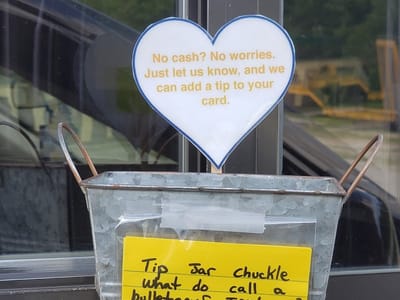 No cash? No worries.
Just let us know, and we
can add a tip to your
card.
Tip Jar chuckle
what do call a